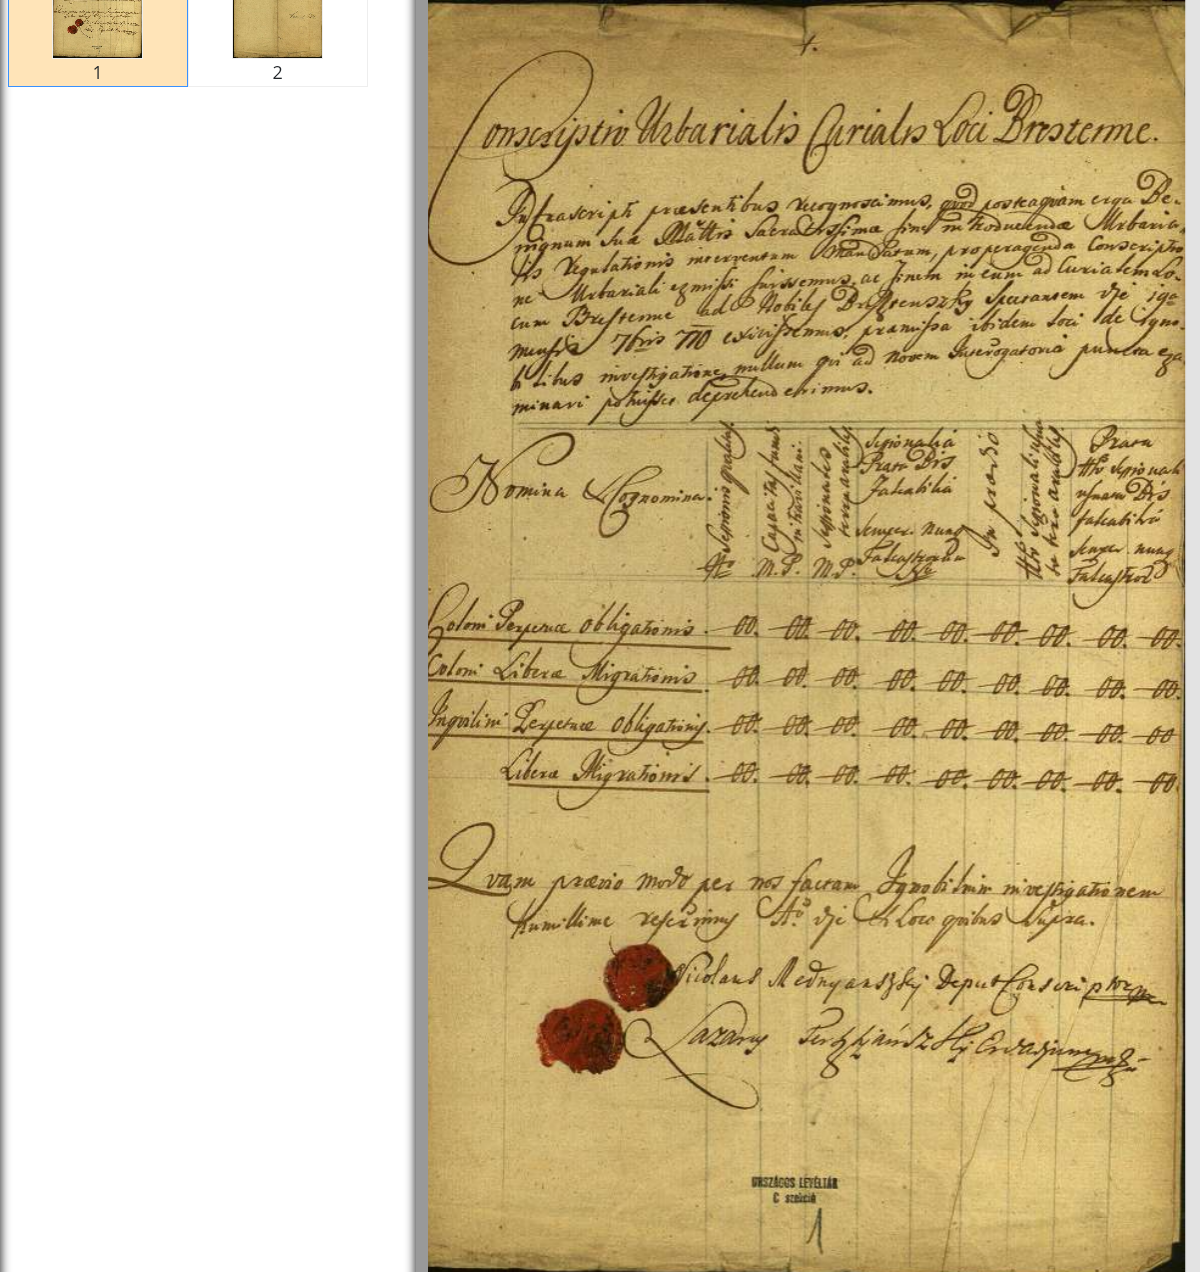 1
2
1.
Conscriptio Urbarialis Curialis Loci Brestenne.
Infrascripti præsentibus recognoscimus, qvod posteaqvam erga Be-
nignum Suæ Mattis Sacratissimæ fine introducendæ Urbaria-
lis Regulationis interventum Mandatum, pro peragenda Conscriptio-
ne Urbariali exmissi fuissemus, ac finem in eum ad Curialem Lo-
cum Brestenne ad Nobiles Spectantem die
mensis 7bris 770 exivissemus, præmissa ibidem loci de igno-
bilibus investigatione, nullum qvi ad novem Interogatoria puncta exa
minari potuisset deprehenderimus.
Nomina & Cognomina.
No Sessionis qualitas
Capacitas fundi intravillani
M. P.
Sessionales terræ arabiles
M. P.
Sessionalia
Prata
falcabilia
semper nunq
Falcastrorum
No
In
terræ arabiles
Prata
falcabilia
semper nunq
Coloni Perpetuæ obligationis. 00. 00. 00. 00. 00. 00. 00. 00. 00.
Coloni Liberæ Migrationis. 00. 00. 00. 00. 00. 00. 00. 00. 00.
Inqvilini Perpetuæ obligationis. 00. 00. 00. 00. 00. 00. 00. 00. 00
Liberæ Migrationis. 00. 00. 00. 00. 00. 00. 00. 00. 00.
Qvam prævio modo per nos factam Ignobilium investigationem
humillime referimus Ao die & Loco qvibus Supra.
Nicolaus Mednyanszky Deput Conscriptor
Lazarus
ORSZÁGOS LEVÉLTÁR
C szekció
1